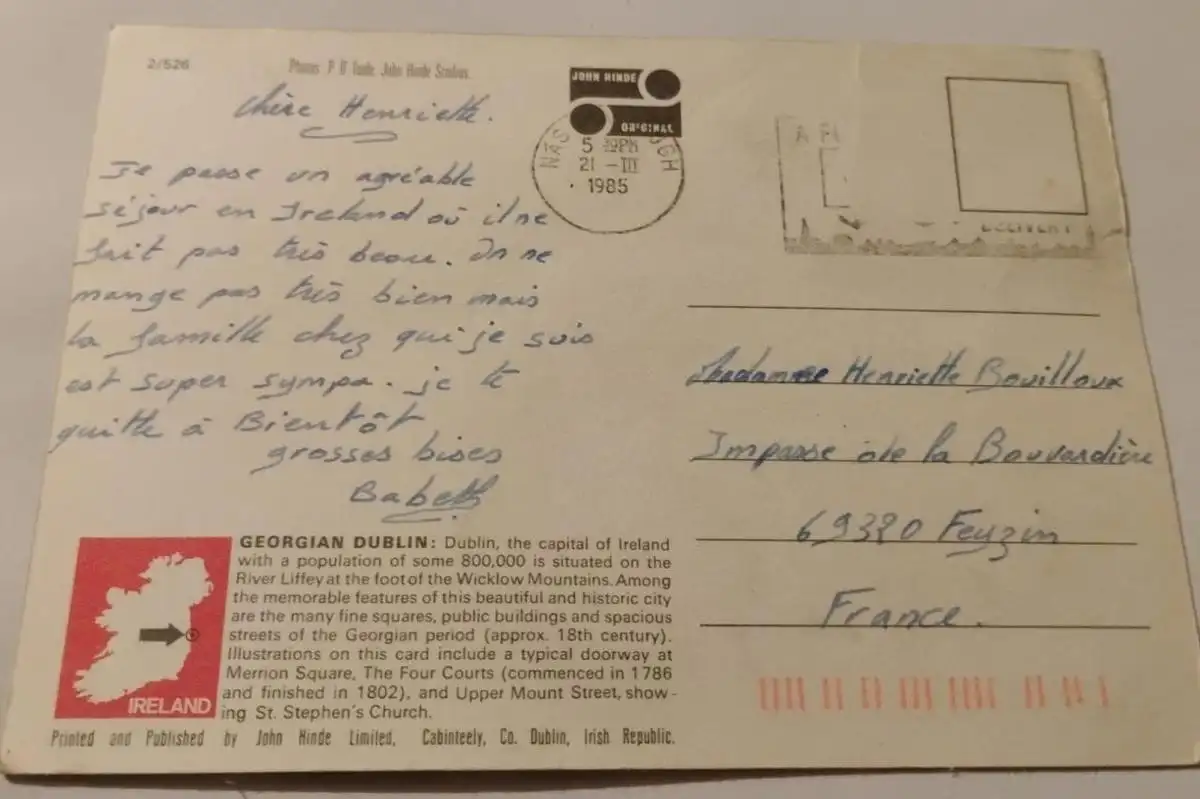 2/526
Photos P O'Toole John Hinde Studios
Chère Henriette.
Je passe un agréable
séjour en Ireland où il ne
fait pas très beau. On ne
mange pas très bien mais
la famille chez qui je suis
est super sympa. je te
quitte à Bientôt
grosses bises
Babeth
JOHN HINDE
ORIGINAL
NÁS
5 PM
21 -III
1985
DELIVERY
Madamme Henriette Bouilloux
Impasse de la Bouvardière
69320 Feyzin
France.
GEORGIAN DUBLIN: Dublin, the capital of Ireland
with a population of some 800,000 is situated on the
River Liffey at the foot of the Wicklow Mountains. Among
the memorable features of this beautiful and historic city
are the many fine squares, public buildings and spacious
streets of the Georgian period (approx. 18th century).
Illustrations on this card include a typical doorway at
Merrion Square, The Four Courts (commenced in 1786
and finished in 1802), and Upper Mount Street, show-
ing St. Stephen's Church.
IRELAND
Printed and Published by John Hinde Limited, Cabinteely, Co. Dublin, Irish Republic.